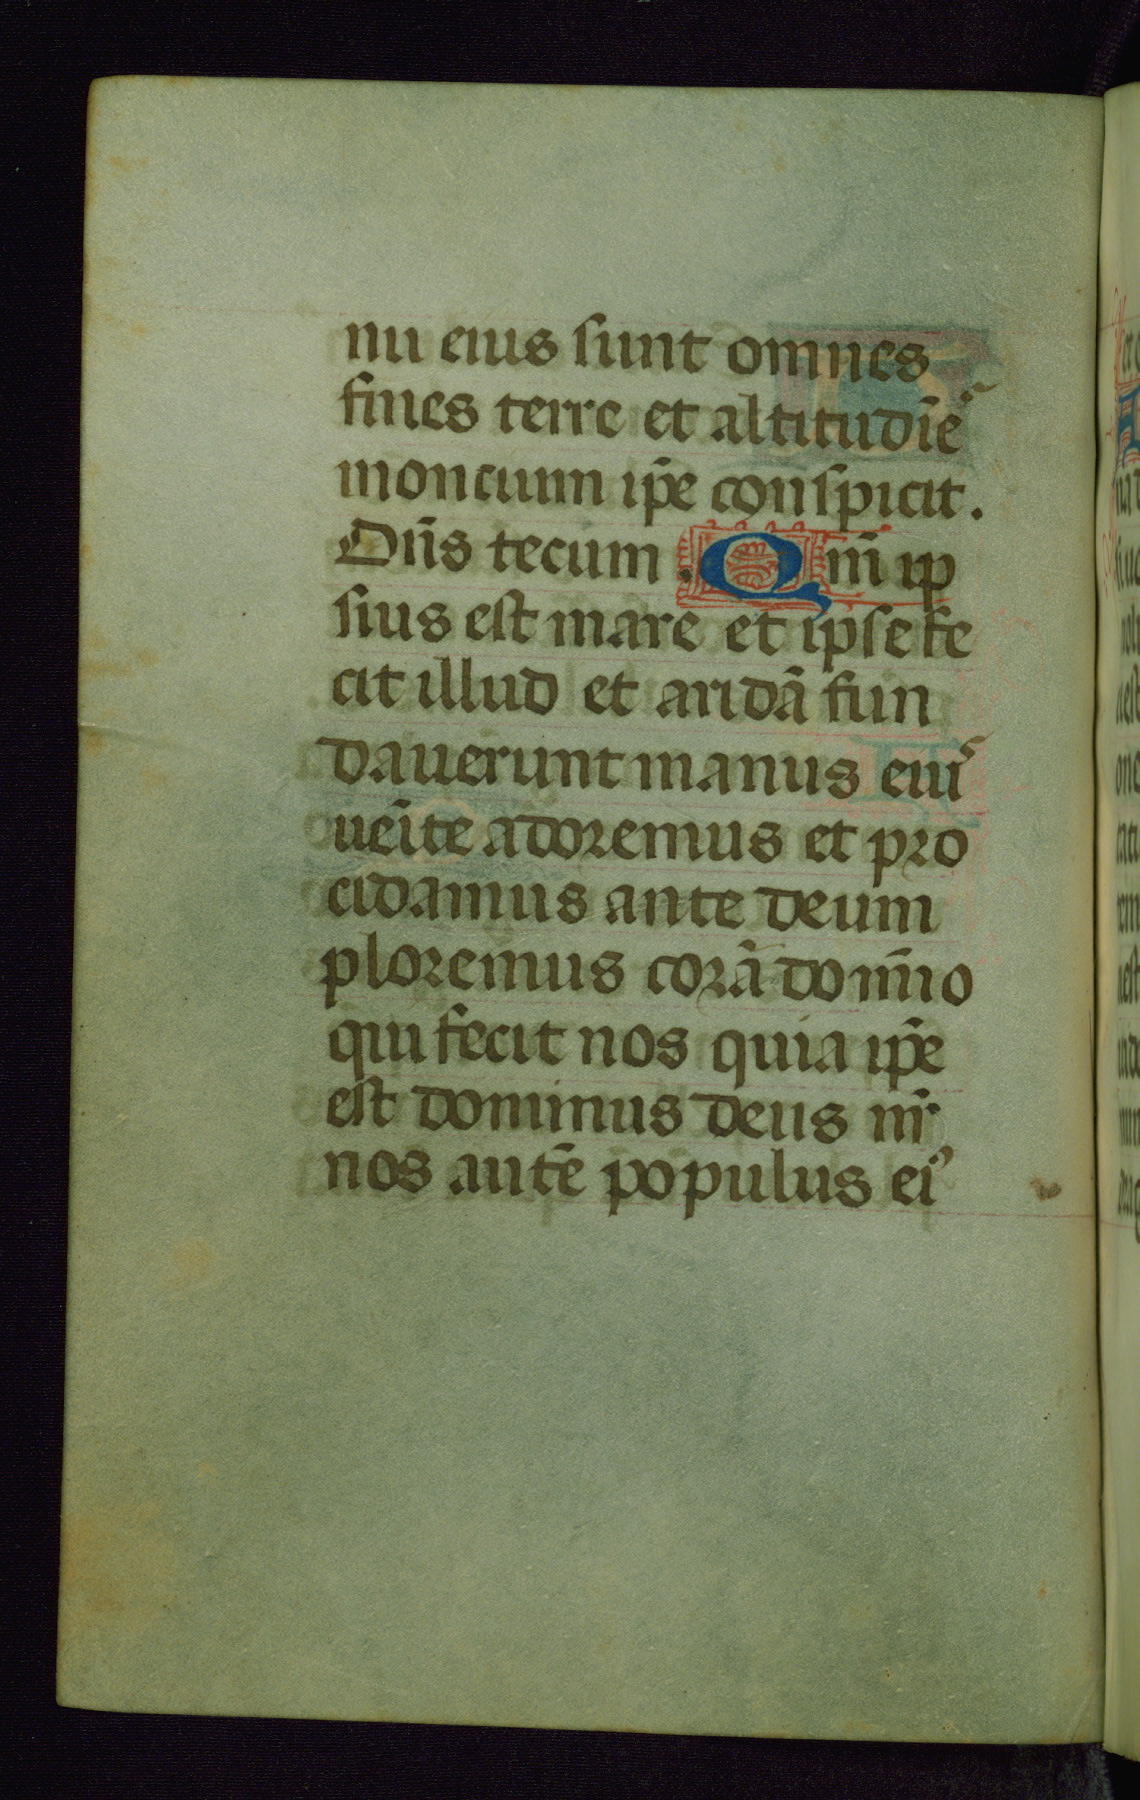 nu eius sunt omnes
fines terre et altitudīe᷒
moncium ip̄e conspicit.
Dn̄s tecum. Qm̄ ip
sius est mare et ipse fe
cit illud et aridā fun
daverunt manus eiu᷒
uēite adoremus et pro
cidamus ante deum
ploremus corā domīo
qui fecit nos quia ip̄e
est dominus deus nr̄
nos autē populus ei᷒